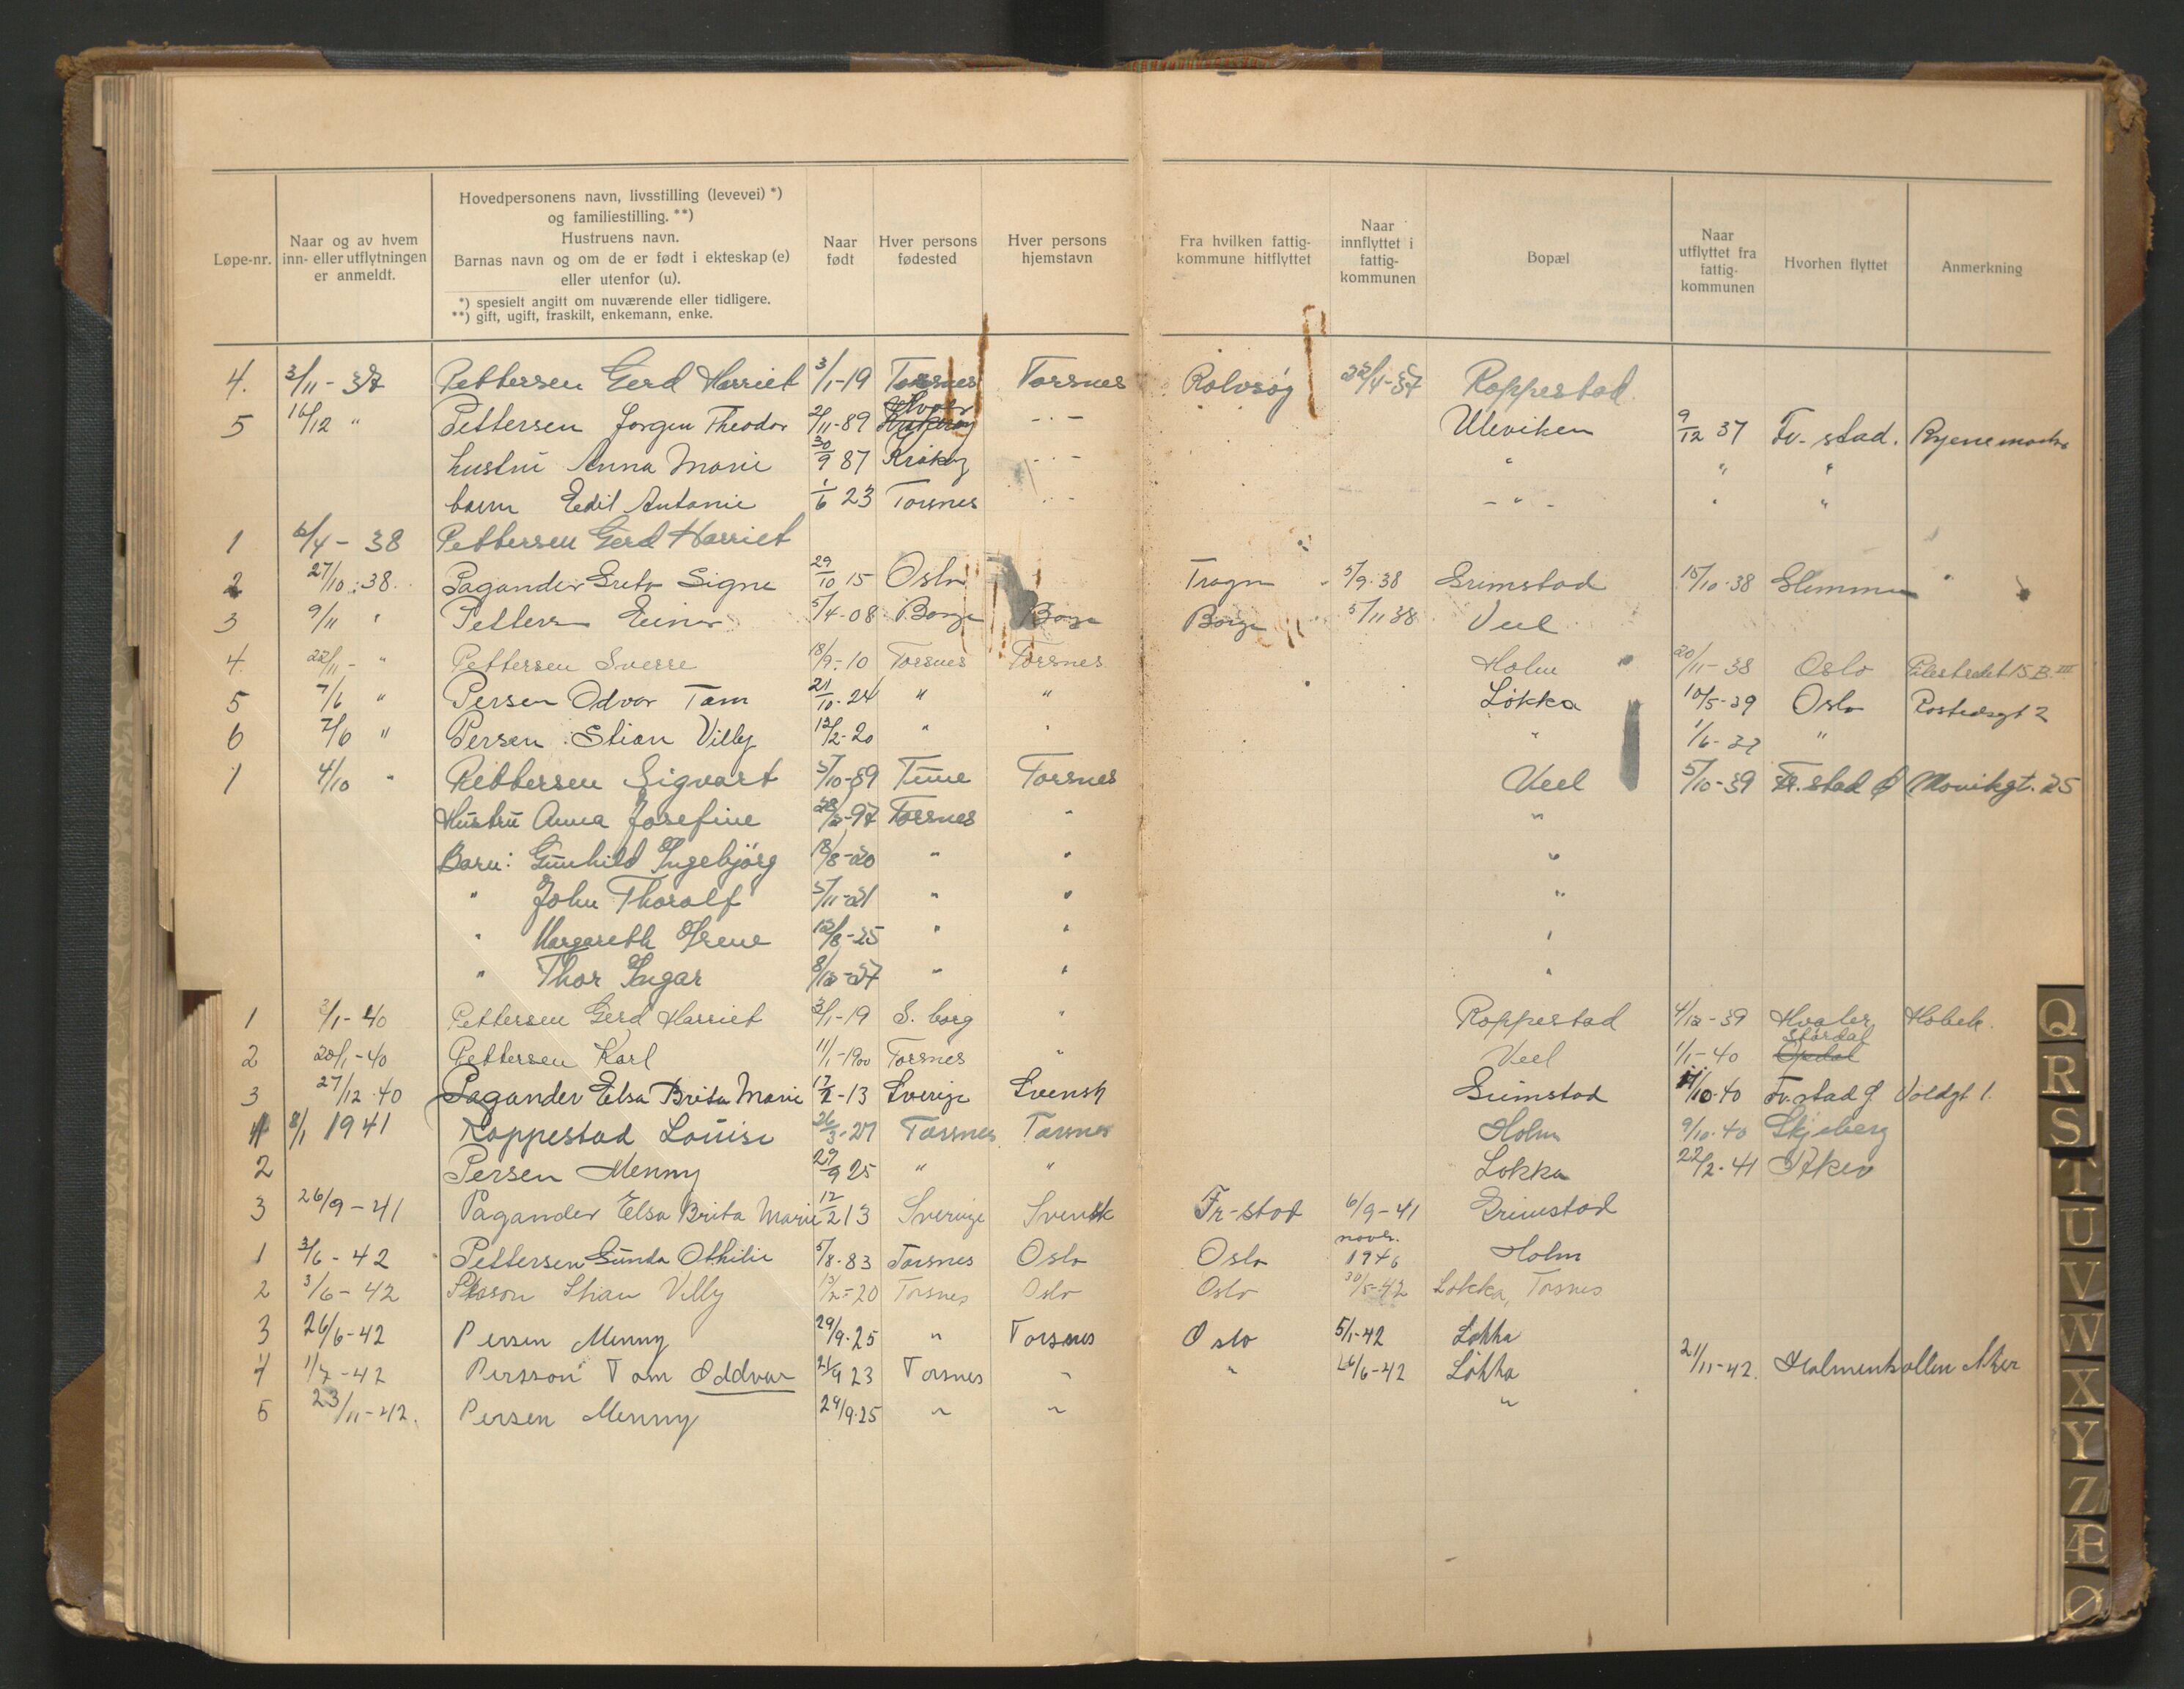 Løpe-nr.
Naar og av hvem
inn- eller utflytningen
er anmeldt.
Hovedpersonens navn, livsstilling (levevei) *)
og familiestilling. **)
Hustruens navn.
Barnas navn og om de er født i ekteskap (e)
eller utenfor (u).
*) spesielt angitt om nuværende eller tidligere.
**) gift, ugift, fraskilt, enkemann, enke.
Naar
født
Hver persons
fødested
Hver persons
hjemstavn
Fra hvilken fattig-
kommune hitflyttet
Naar
innflyttet i
fattig-
kommunen
Bopæl
Naar
utflyttet fra
fattig-
kommunen
Hvorhen flyttet
Anmerkning
4. 3/11-37 Pettersen Gerd Harriet 3/1-19 Torsnes Torsnes Rolvsøy 22/4-37 Roppestad
Hvaler
5 16/12 " Pettersen Jørgen Theodor 2/11-89 - " - Uleviken 9/12 37 Fr.stad.
hustru Anna Marie 30/9 87 Kråkøy - " - " " "
barn Edil Antonie 1/6 23 Torsnes - " - - " - " "
1 6/4-38 Pettersen Gerd Harriet
2 27/10-38. Pagander Greta Signe 29/10 15 Oslo Trøgn 5/9-38 Grimstad 15/10-38 Glemmen
3 9/11 " Petters Einar 5/4-08 Borge Borge Borge 5/11 38 Veel
4. 22/11- " Pettersen Sverre 18/9-10 Torsnes Torsnes Holm 20/11-38 Oslo Pilestredet 15 B. III
5 7/6 " Persen Odvar Tom 21/10-24 " " Løkka 10/5-39 Oslo Rostedsgt 2
6 7/6 " Persen Stian Villy 12/2-20 " " " 1/6-39 "
1 4/10 " Pettersen Sigvart 5/10-89 Tune Torsnes Veel 5/10-39 Fr.stad Ø Movikgt. 25
Hustru Anna Josefine 28/12-97 Torsnes " "
Barn: Gunhild Ingebjørg 18/8-20 " " "
" John Thoralf 5/11-21 " " "
" Margareth Irene 12/8-25 " " "
" Thor Ingar 8/12-27 " " "
1 2/1-40 Pettersen Gerd Harriet 3/1-19 S. borg " Roppestad 4/12-39 Hvaler Hobek.
Stordal
2 20/1-40 Pettersen Karl 11/1-1900 Torsnes " Veel 1/1-40 Opdal
3 27/12-40 Pagander Elsa Brita Marie 12/2-13 Sverige Svensk Grimstad 11/10-40 Fr.stad Ø Voldgt 1.
1 8/1 1941 Roppestad Louise 26/3-27 Torsnes Torsnes Holm 9/10-40 Skjeberg
2 Persen Menny 29/9 25 " " Løkka 22/2-41 Aker
3 26/9-41 Pagander Elsa Brita Marie 12/2 13 Sverige Svensk Fr-stad 6/9-41 Grimstad
novbr.
1 3/6-42 Pettersen Gunda Othilie 5/8-83 Torsnes Oslo Oslo 1946 Holm
2 3/6-42 Person Stian Villy 12/2-20 Torsnes Oslo Oslo 30/5-42 Løkka, Torsnes
3 26/6-42 Persen Menny 29/9-25 " Torsnes Oslo 5/1-42 Løkka
4 1/7-42 Persson Tom Oddvar 21/9 23 Torsnes " " 26/6-42 Løkka 21/11-42. Holmenkollen Aker
5 23/11-42. Persen Menny 29/9-25 " " "
Q
R
S
T
U
V
W
X
Y
Z
Æ
Ø